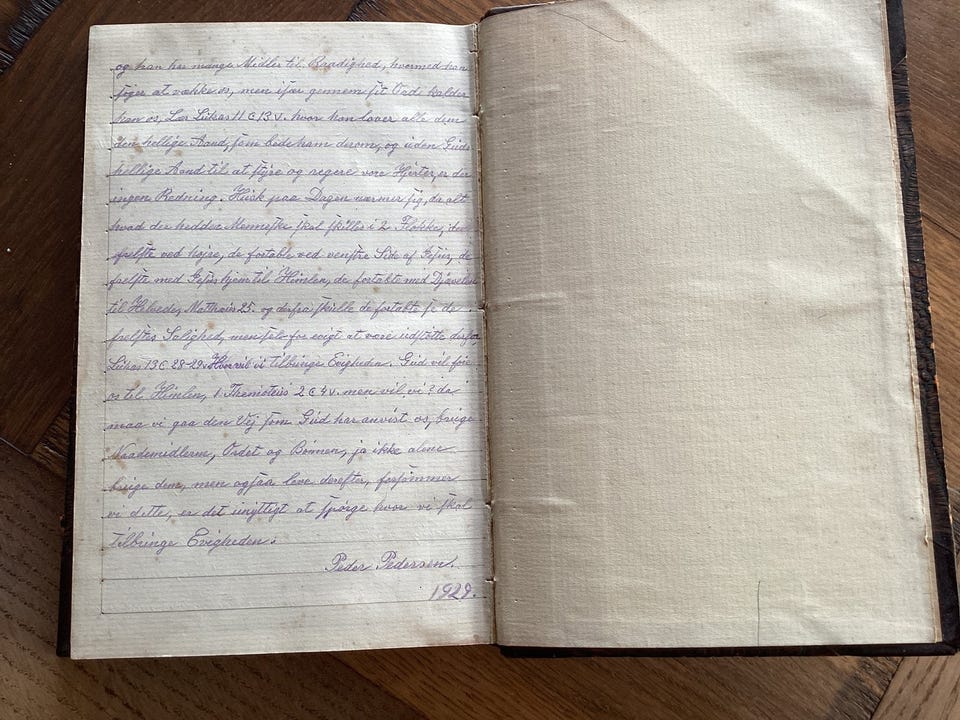 og han har mange Midler til Raadighed, hvormed han
søger at vække os, men især gennem sit Ord kalder
han os, Læs Lukas 11 C 13 v. hvor han lover alle dem
den hellige Aand, som bede ham derom, og uden Guds
hellige Aand til at styre og regere vore Hjerter, er der
ingen Redning. Husk paa Dagen nærmer sig, da alt
hvad der hedder Menneske skal skilles i 2 Flokke, de
frelste ved højre, de fortabte ved venstre Side af Jesus, de
frelste med Jesus hjem til Himlen, de fortabte med Djævelen
til Helvede, Matthæus 25. og derfra skulle de fortabte se de
frelstes Salighed, men selv for evigt at være udstötte derfra
Lukas 13 C 28-29 v. Hvor vil vi tilbringe Evigheden. Gud vil
os til Himlen, 1 Themoteus 2 C 4 v. men vil vi? da
maa vi gaa den Vej som Gud har anvist os, bruge
Naademidlerne, Ordet og Bönnen, ja ikke alene
bruge dem, men ogsaa leve derefter, forsömmer
vi dette, er det unyttigt at spörge hvor vi skal
tilbringe Evigheden.
Peder Pedersen.
1929.